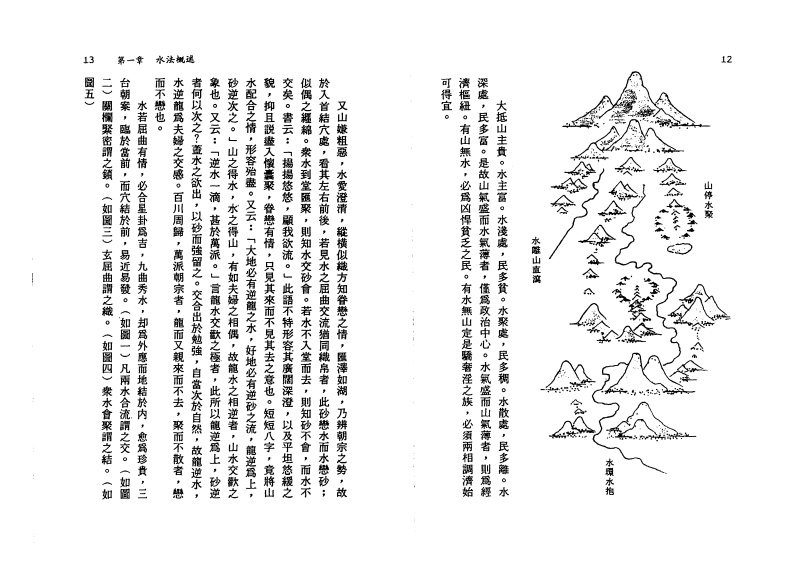 12
山停水聚
水離山直瀉
水環水抱
大抵山主貴。水主富。水淺處,民多貧。水聚處,民多稠。水散處,民多離。水
深處,民多富。是故山氣盛而水氣薄者,僅爲政治中心。水氣盛而山氣薄者,則爲經
濟樞紐。有山無水,必爲凶悍貧乏之民。有水無山定是驕奢淫之族,必須兩相調濟始
可得宜。
13 第一章 水法概述
又山嫌粗惡,水愛澄清,縱橫似織方知眷戀之情,匯澤如湖,乃辨朝宗之勢,故
於入首結穴處,看其左右前後,若見水之屈曲交流猶同織帛者,此砂戀水而水戀砂;
似偶之纏綿。衆水到堂匯聚,則知水交砂會。若水不入堂而去,則知砂不會,而水不
交矣。書云:「揚揚悠悠,顧我欲流。」此語不特形容其廣闊深澄,以及平坦悠緩之
貌,抑且説盡入懷囊聚,眷戀有情,只見其來而不見其去之意也。短短八字,竟將山
水配合之情,形容殆盡。又云:「大地必有逆龍之水,好地必有逆砂之流,龍逆爲上,
砂逆次之。」山之得水,水之得山,有如夫婦之相偶,故龍水之相逆者,山水交歡之
象也。又云:「逆水一滴,甚於萬派。」言龍水交歡之極者,此所以龍逆爲上,砂逆
者何以次之?蓋水之欲出,以砂而強留之。交合出於勉強,自當次於自然,故龍逆水,
水逆龍爲夫婦之交感。百川周歸,萬派朝宗者,龍而又親來而不去,聚而不散者,戀
而不戀也。
水若屈曲有情,必合星卦爲吉,九曲秀水,却爲外應而地結於內,愈爲珍貴,三
台朝案,臨於當前,而穴結於前,易近易發。(如圖一)凡兩水合流謂之交。(如圖
二)關欄緊密謂之鎖。(如圖三)玄屈曲謂之織。(如圖四)衆水會聚謂之結。(如
圖五)